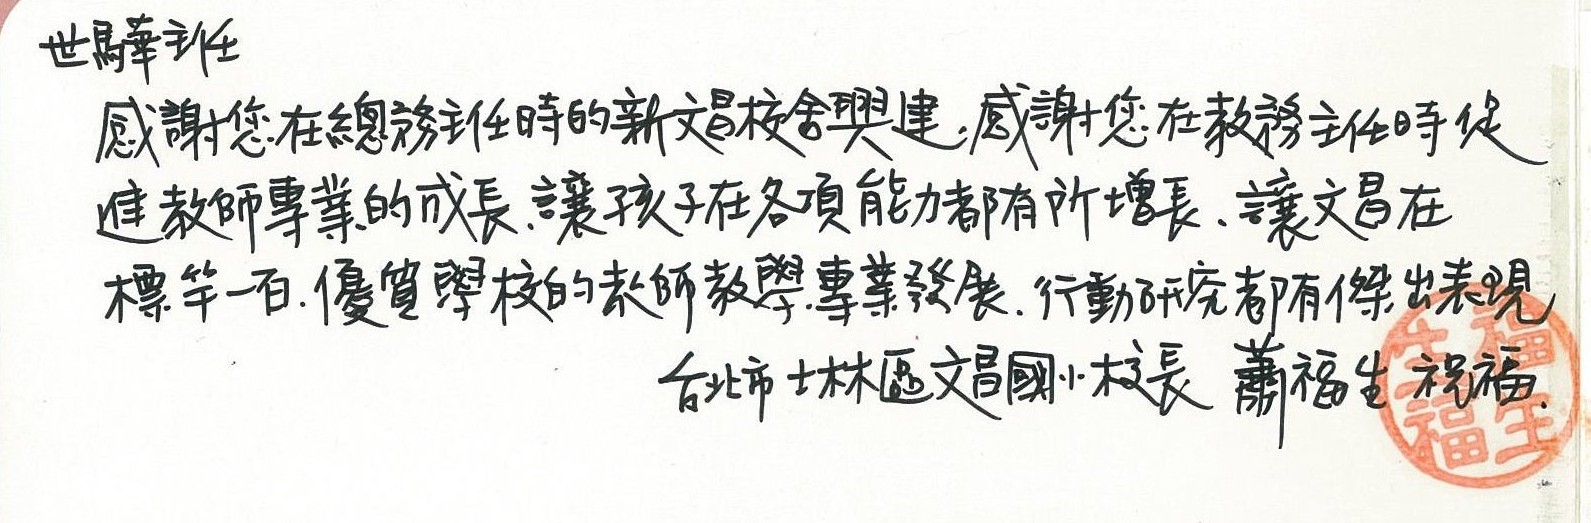 世驊主任
感謝您在總務主任時的新文昌校舍興建,感謝您在教務主任時促
進教師專業的成長、讓孩子在各項能力都有所增長、讓文昌在
標竿一百、優質學校的教師教學、專業發展、行動研究都有傑出表現
台北市士林區文昌國小校長 蕭福生 祝福.
福生
福生